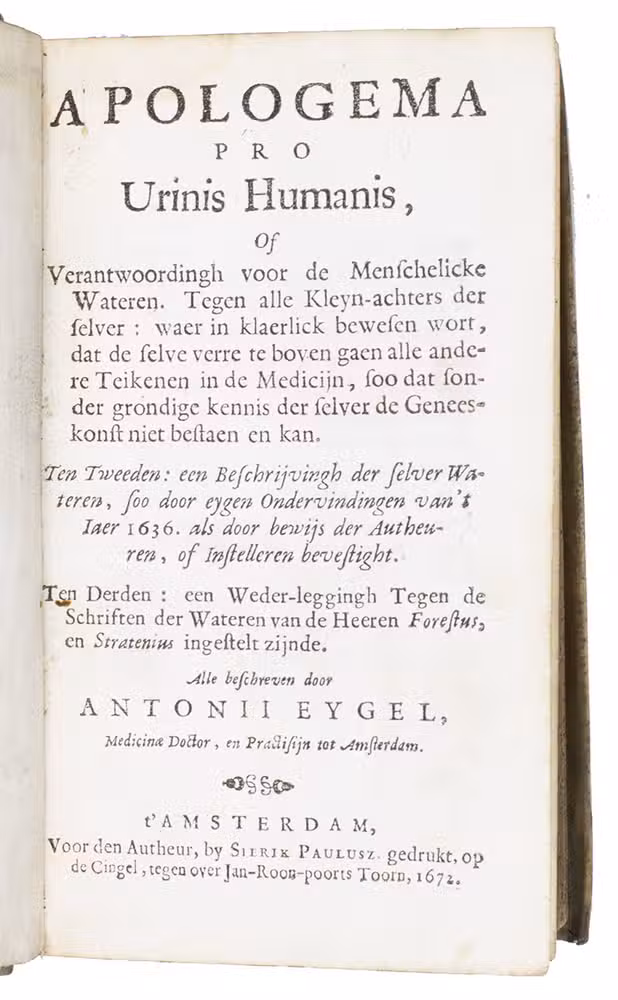 APOLOGEMA
PRO
Urinis Humanis,
Of
Verantwoordingh voor de Menſchelicke
Wateren. Tegen alle Kleyn-achters der
ſelver : waer in klaerlick beweſen wort,
dat de ſelve verre te boven gaen alle ande-
re Teikenen in de Medicijn, ſoo dat ſon-
der grondige kennis der ſelver de Genees-
konſt niet beſtaen en kan.
Ten Tweeden: een Beſchrijvingh der ſelver Wa-
teren, ſoo door eygen Ondervindingen van't
Iaer 1636. als door bewijs der Autheu-
ren, of Inſtelleren beveſtight.
Ten Derden : een Weder-leggingh Tegen de
Schriften der Wateren van de Heeren Foreſtus,
en Stratenius ingeſtelt zijnde.
Alle beſchreven door
ANTONII EYGEL,
Medicinæ Doctor, en Practiſijn tot Amſterdam.
t'AMSTERDAM,
Voor den Autheur, by SIERIK PAULUSZ. gedrukt, op
de Cingel, tegen over Jan-Roon-poorts Toorn, 1672.